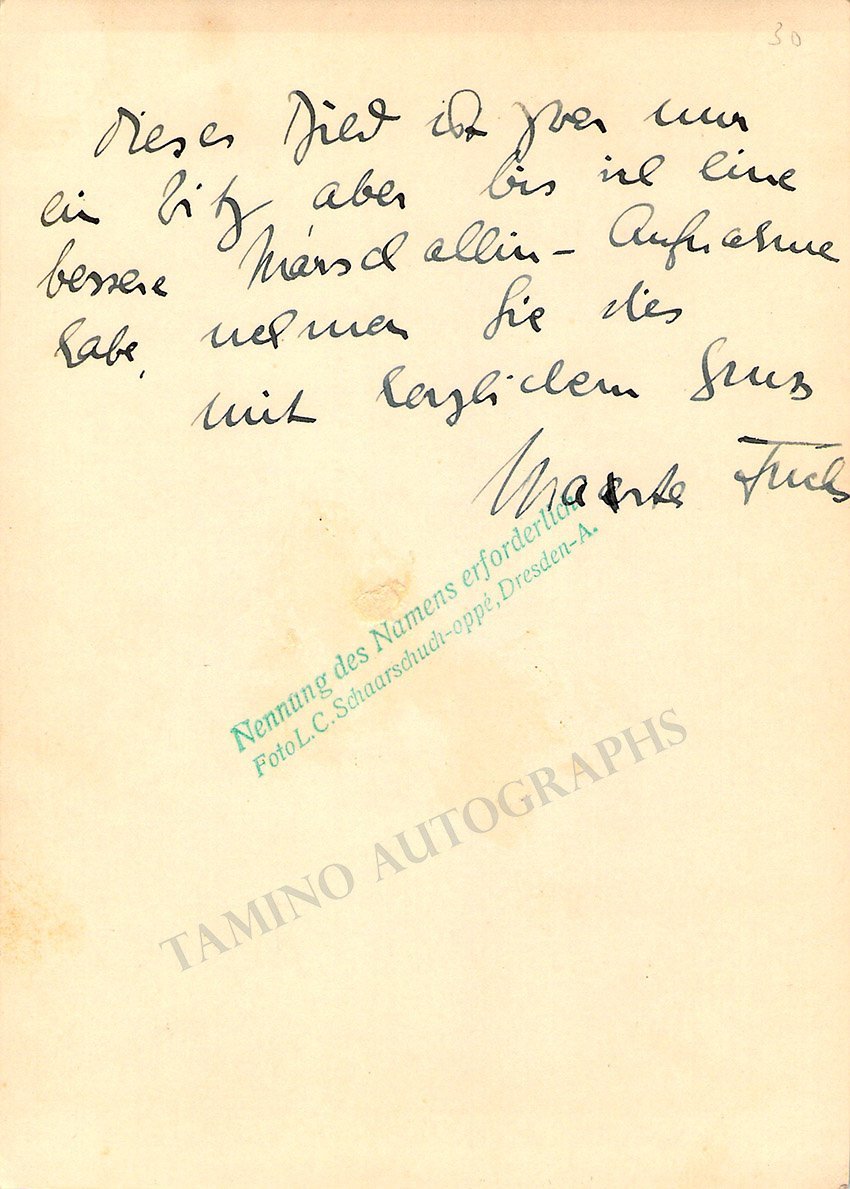 30
Dieses Bild ist zwar nur
ein Witz, aber bis ich eine
bessere Marschallin-Aufnahme
habe, nehmen Sie dies
mit herzlichem Gruss
Marta Fuchs
Nennung des Namens erforderlich
Foto L. C. Schaarschuch-oppé, Dresden-A.
TAMINO AUTOGRAPHS